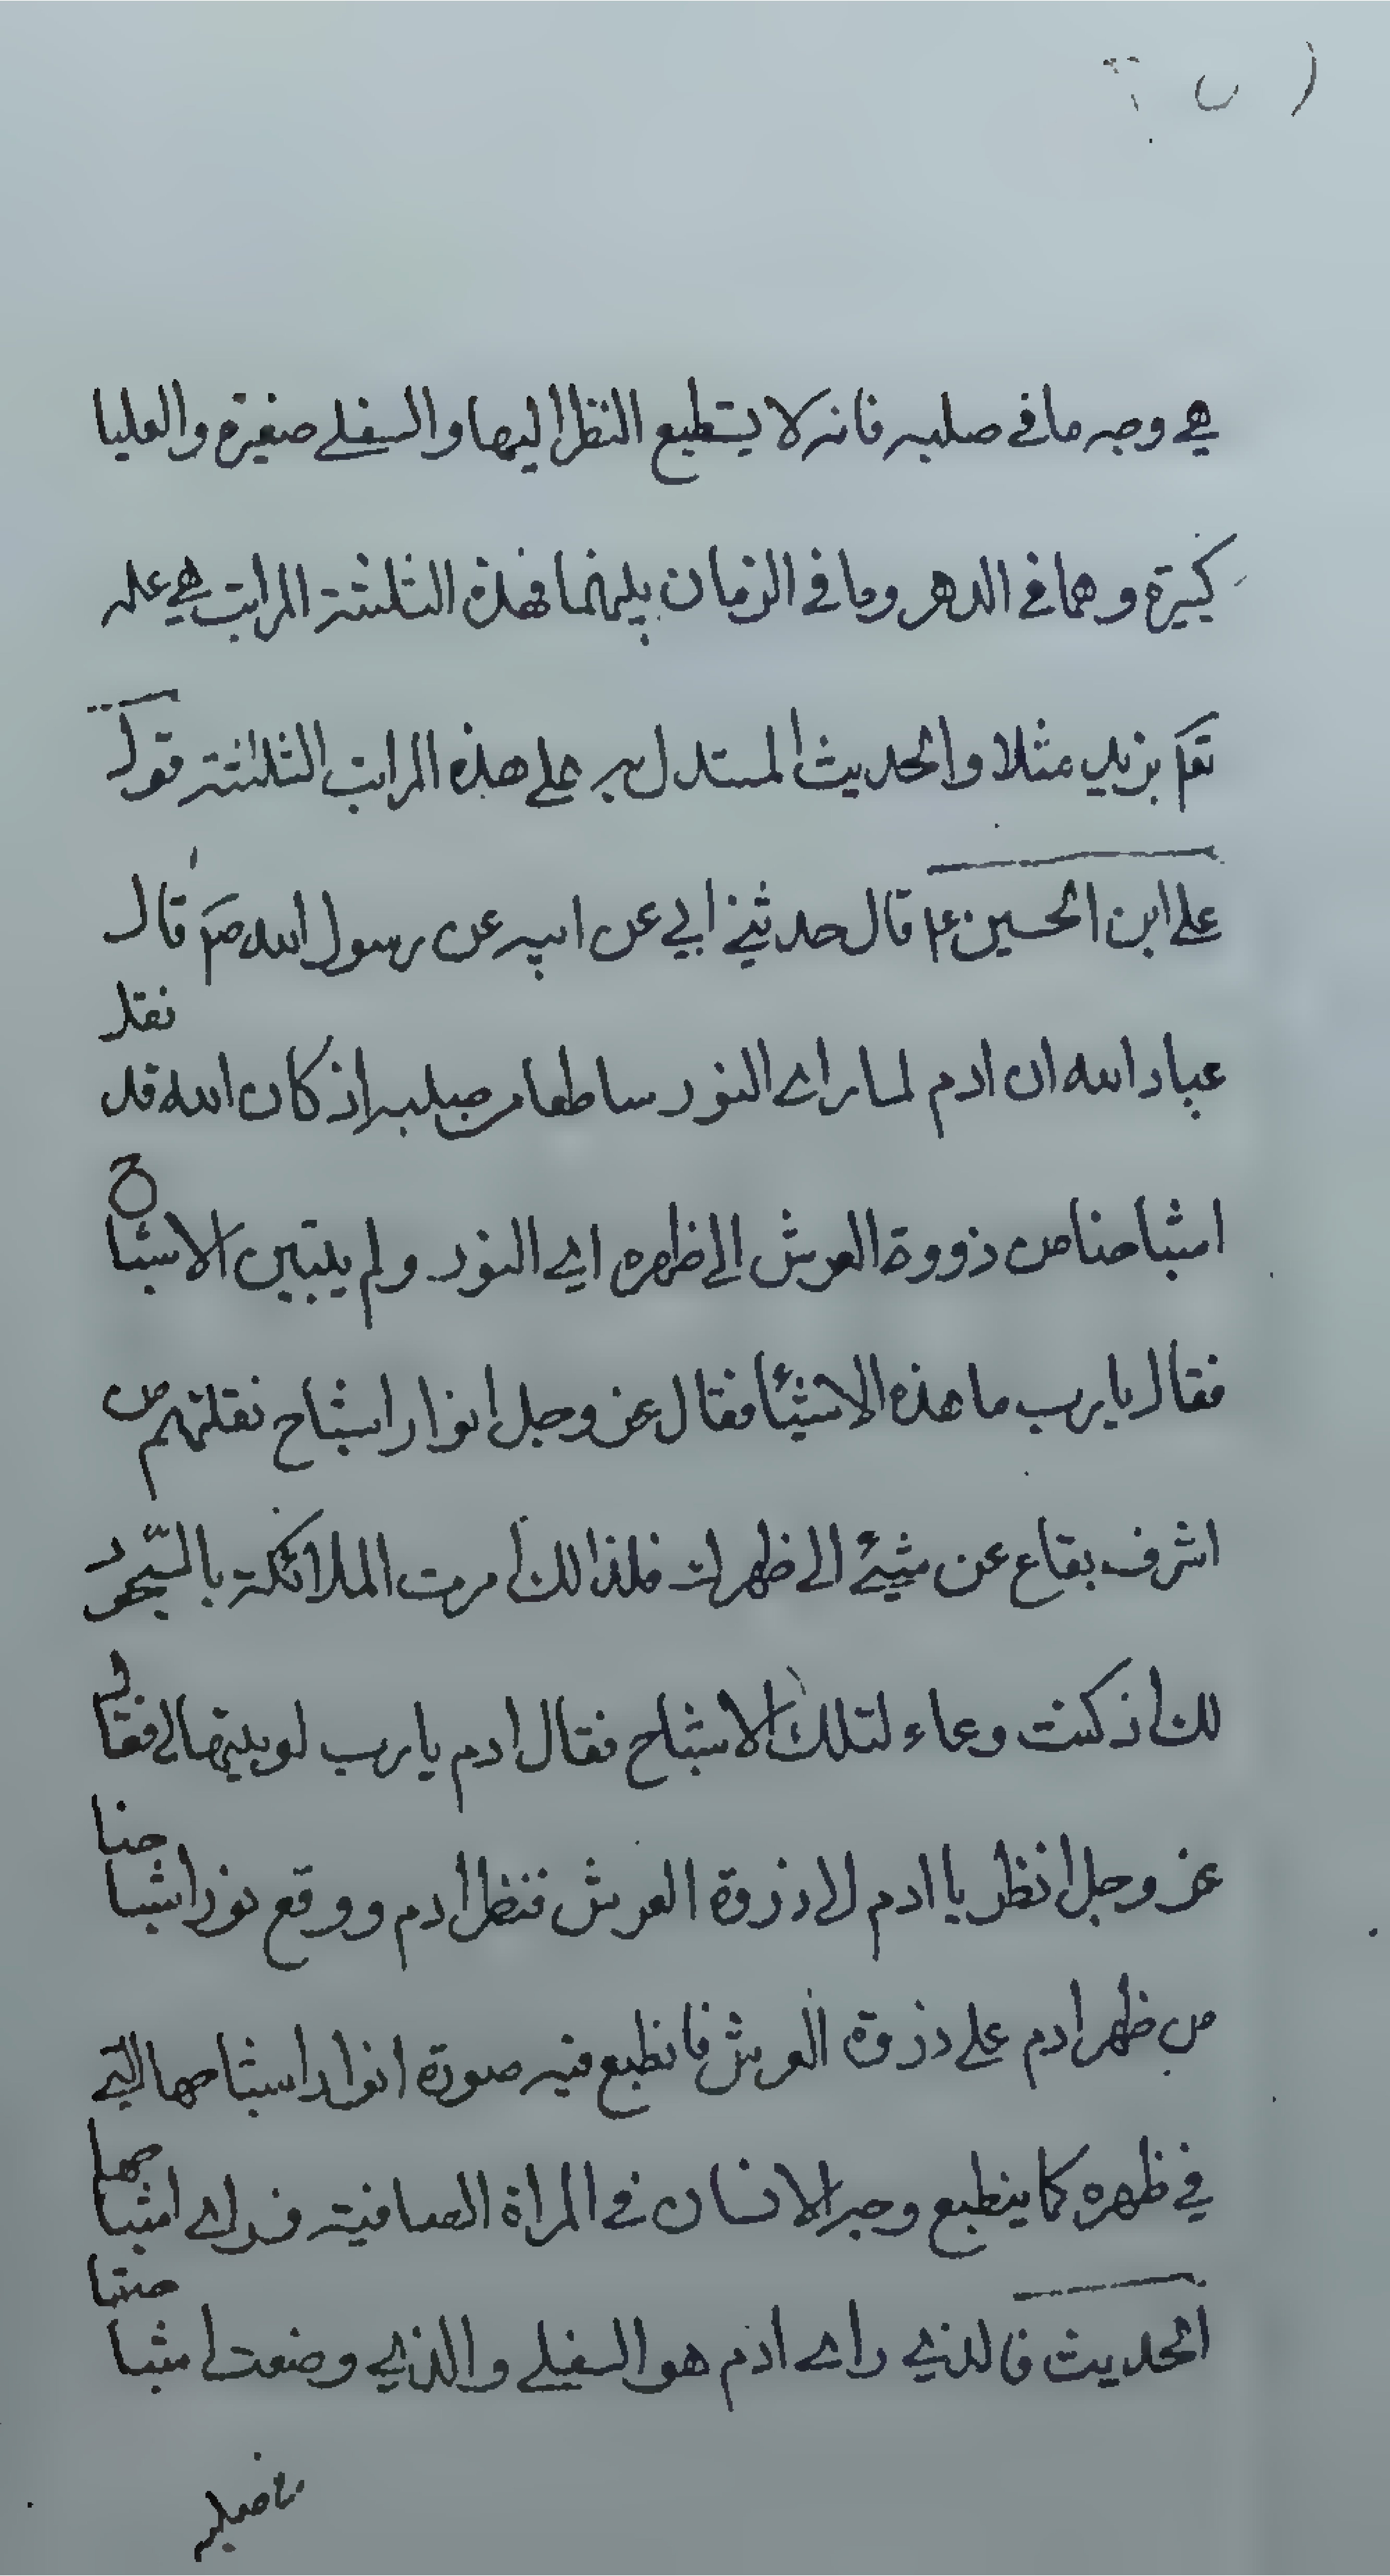 هي وجه ما في صلبه فانه لا يستطيع النظر اليها والسفلے صغيرة والعليا
كبيرة وهما في الدهر وما في الزمان بينهما فهذه الثلثة المراتب هي علمه
تعم بزيد مثلا والحديث المستدل به علے هذه المراتب الثلثة قوله
علے ابن الحسين ع قال حدثني ابي عن ابيه عن رسول الله ص قال
عباد الله ان ادم لما راے النور ساطعا من صلبه اذ كان الله قد نقل
اشباحنا من ذووة العرش الے ظهره راے النور ولم يتبين الاشباح
فقال يارب ما هذه الاشيئا فقال عز وجل انوار اشباح نقلتهم من
اشرف بقاع عن شيئے الے ظهرك فلذالك أمرت الملائكة بالسّجود
لك اذ كنت وعاء لتلك الاشباح فقال ادم يارب لو بينتها لے فقال
عز وجل انظر يا ادم الے ذزوة العرش فنظر ادم ووقع نور اشباحنا
من ظهر ادم علے ذزوة العرش فانطبع فيه صورة انوار اشباحها التے
في ظهره كما ينطبع وجه الانسان في المراة الصافية فراے اشباحها
الحديث فالذي راے ادم هو السفلے والذي وضعت اشباحنا